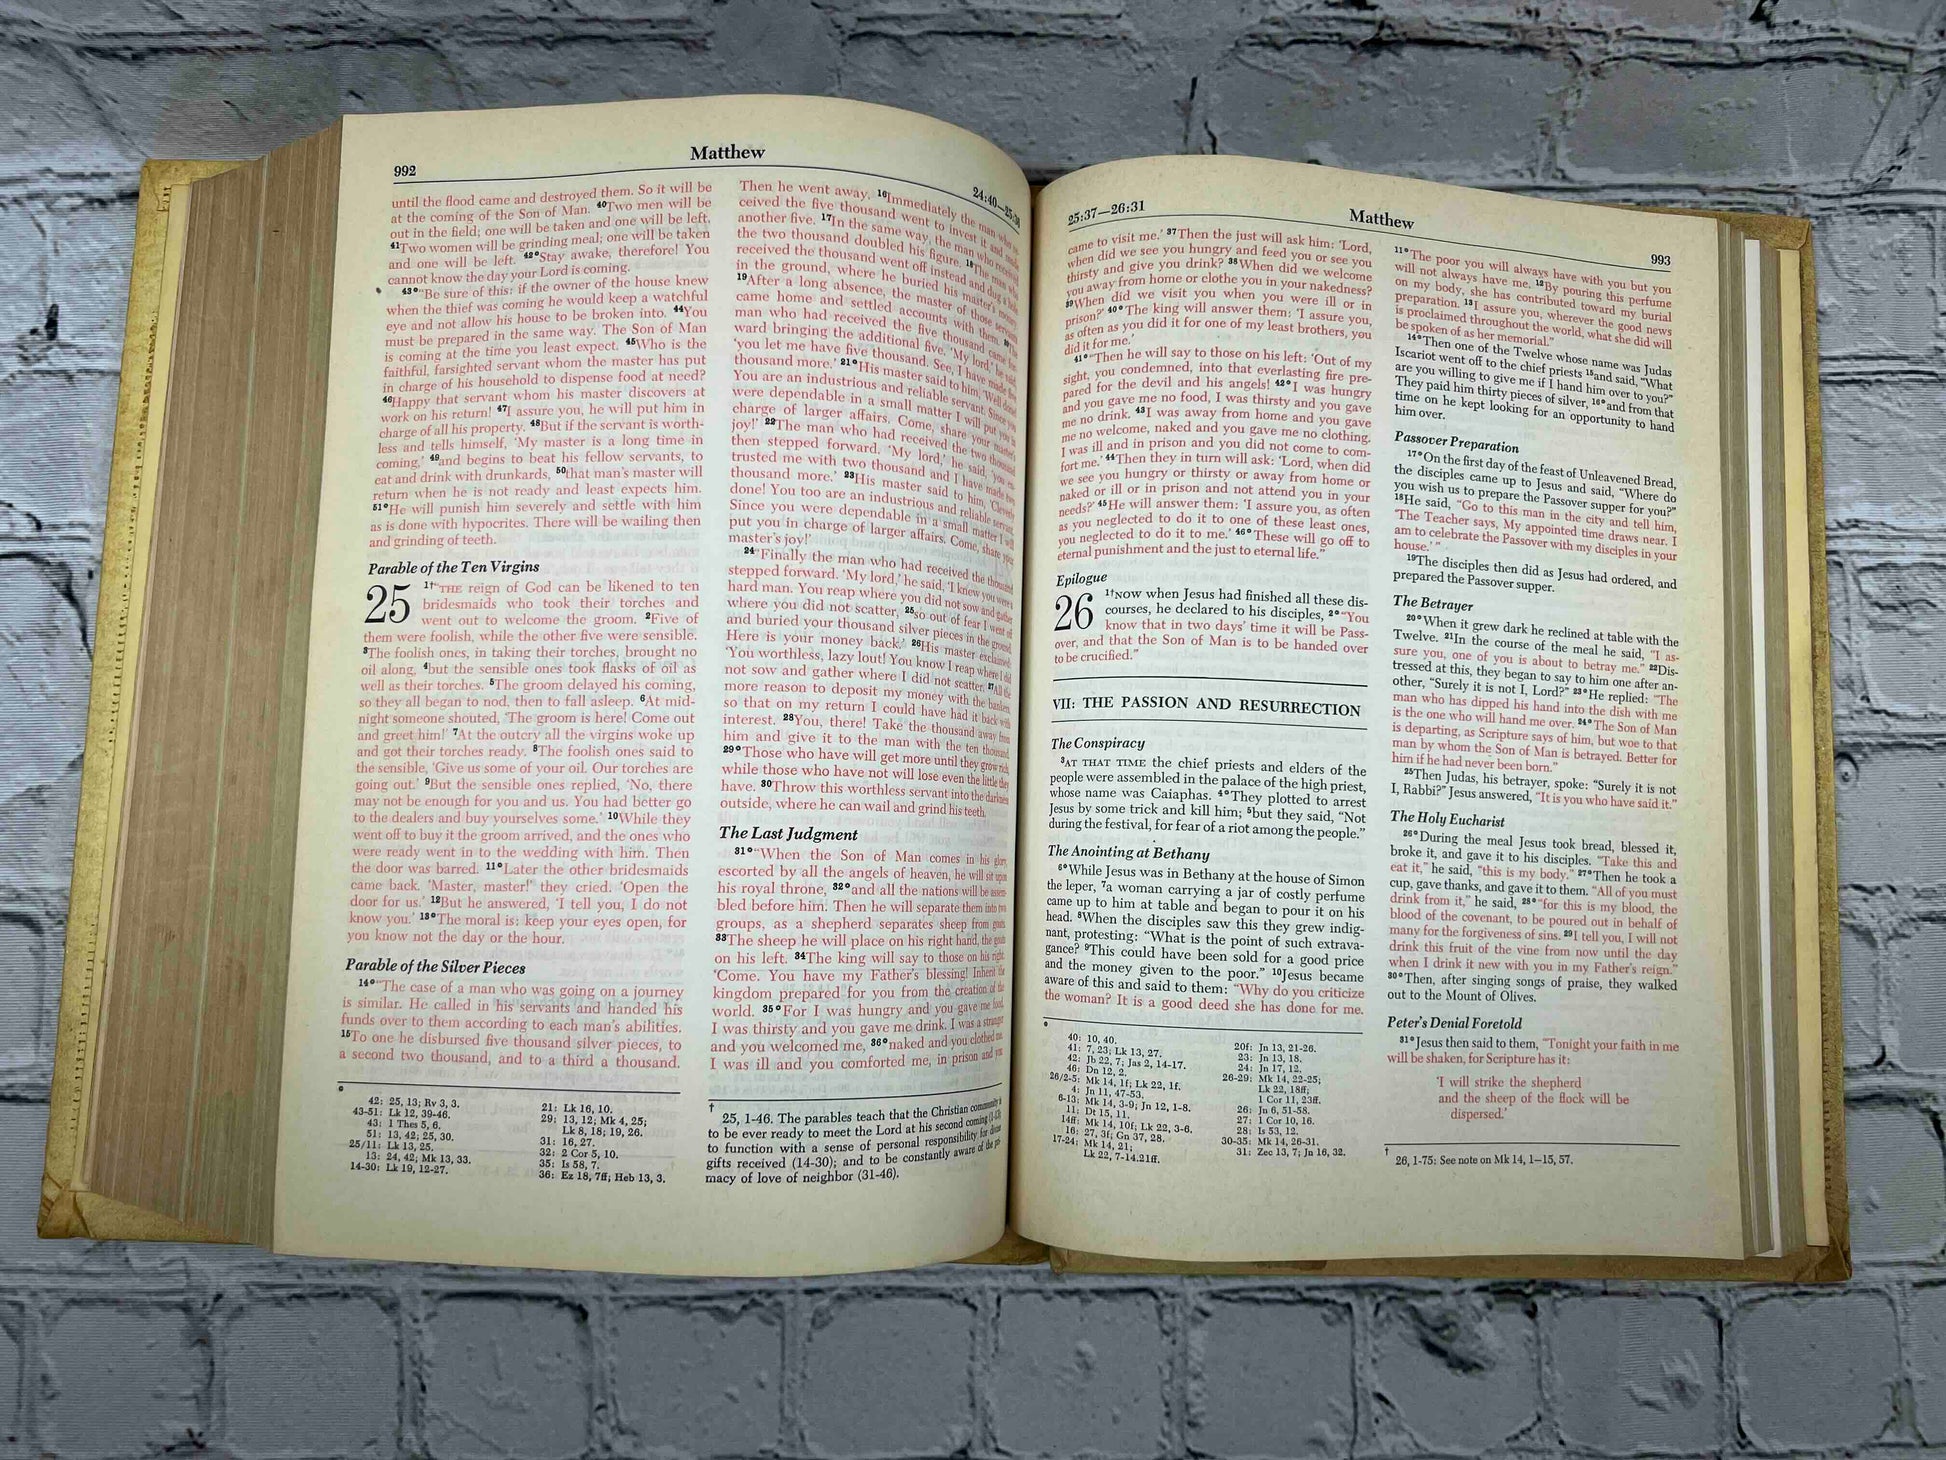 992
Matthew
24:40—25:36
until the flood came and destroyed them. So it will be
at the coming of the Son of Man. 40Two men will be
out in the field; one will be taken and one will be left.
41Two women will be grinding meal; one will be taken
and one will be left. 42°Stay awake, therefore! You
cannot know the day your Lord is coming.
43°"Be sure of this: if the owner of the house knew
when the thief was coming he would keep a watchful
eye and not allow his house to be broken into. 44You
must be prepared in the same way. The Son of Man
is coming at the time you least expect. 45Who is the
faithful, farsighted servant whom the master has put
in charge of his household to dispense food at need?
46Happy that servant whom his master discovers at
work on his return! 47I assure you, he will put him in
charge of all his property. 48But if the servant is worth-
less and tells himself, 'My master is a long time in
coming,' 49and begins to beat his fellow servants, to
eat and drink with drunkards, 50that man's master will
return when he is not ready and least expects him.
51°He will punish him severely and settle with him
as is done with hypocrites. There will be wailing then
and grinding of teeth.
Parable of the Ten Virgins
25 1†"THE reign of God can be likened to ten
bridesmaids who took their torches and
went out to welcome the groom. 2Five of
them were foolish, while the other five were sensible.
3The foolish ones, in taking their torches, brought no
oil along, 4but the sensible ones took flasks of oil as
well as their torches. 5The groom delayed his coming,
so they all began to nod, then to fall asleep. 6At mid-
night someone shouted, 'The groom is here! Come out
and greet him!' 7At the outcry all the virgins woke up
and got their torches ready. 8The foolish ones said to
the sensible, 'Give us some of your oil. Our torches are
going out.' 9But the sensible ones replied, 'No, there
may not be enough for you and us. You had better go
to the dealers and buy yourselves some.' 10While they
went off to buy it the groom arrived, and the ones who
were ready went in to the wedding with him. Then
the door was barred. 11°Later the other bridesmaids
came back. 'Master, master!' they cried. 'Open the
door for us.' 12But he answered, 'I tell you, I do not
know you.' 13°The moral is: keep your eyes open, for
you know not the day or the hour.
Parable of the Silver Pieces
14°"The case of a man who was going on a journey
is similar. He called in his servants and handed his
funds over to them according to each man's abilities.
15To one he disbursed five thousand silver pieces, to
a second two thousand, and to a third a thousand.
Then he went away. 16Immediately the man who re-
ceived the five thousand went to invest it and made
another five. 17In the same way, the man who received
the two thousand doubled his figure. 18The man who
received the thousand went off instead and dug a hole
in the ground, where he buried his master's money.
19After a long absence, the master of those servants
came home and settled accounts with them. 20The
man who had received the five thousand came for-
ward bringing the additional five. 'My lord,' he said,
'you let me have five thousand. See, I have made five
thousand more.' 21°His master said to him, 'Well done!
You are an industrious and reliable servant. Since you
were dependable in a small matter I will put you in
charge of larger affairs. Come, share your master's
joy!' 22The man who had received the two thousand
then stepped forward. 'My lord,' he said, 'you en-
trusted me with two thousand and I have made two
thousand more.' 23His master said to him, 'Cleverly
done! You too are an industrious and reliable servant.
Since you were dependable in a small matter I will
put you in charge of larger affairs. Come, share your
master's joy!'
24"Finally the man who had received the thousand
stepped forward. 'My lord,' he said, 'I knew you were a
hard man. You reap where you did not sow and gather
where you did not scatter, 25so out of fear I went off
and buried your thousand silver pieces in the ground.
Here is your money back.' 26His master exclaimed:
'You worthless, lazy lout! You know I reap where I did
not sow and gather where I did not scatter. 27All the
more reason to deposit my money with the bankers,
so that on my return I could have had it back with
interest. 28You, there! Take the thousand away from
him and give it to the man with the ten thousand.
29°Those who have will get more until they grow rich,
while those who have not will lose even the little they
have. 30Throw this worthless servant into the darkness
outside, where he can wail and grind his teeth.'
The Last Judgment
31°"When the Son of Man comes in his glory,
escorted by all the angels of heaven, he will sit upon
his royal throne, 32°and all the nations will be assem-
bled before him. Then he will separate them into two
groups, as a shepherd separates sheep from goats.
33The sheep he will place on his right hand, the goats
on his left. 34The king will say to those on his right:
'Come. You have my Father's blessing! Inherit the
kingdom prepared for you from the creation of the
world. 35°For I was hungry and you gave me food,
I was thirsty and you gave me drink. I was a stranger
and you welcomed me, 36°naked and you clothed me.
I was ill and you comforted me, in prison and you
°
42: 25, 13; Rv 3, 3.
43-51: Lk 12, 39-46.
43: 1 Thes 5, 6.
51: 13, 42; 25, 30.
25/11: Lk 13, 25.
13: 24, 42; Mk 13, 33.
14-30: Lk 19, 12-27.
21: Lk 16, 10.
29: 13, 12; Mk 4, 25;
Lk 8, 18; 19, 26.
31: 16, 27.
32: 2 Cor 5, 10.
35: Is 58, 7.
36: Ez 18, 7ff; Heb 13, 3.
†
25, 1-46. The parables teach that the Christian community is
to be ever ready to meet the Lord at his second coming (1-13);
to function with a sense of personal responsibility for diverse
gifts received (14-30); and to be constantly aware of the pri-
macy of love of neighbor (31-46).
25:37—26:31
Matthew
993
came to visit me.' 37Then the just will ask him: 'Lord,
when did we see you hungry and feed you or see you
thirsty and give you drink? 38When did we welcome
you away from home or clothe you in your nakedness?
39When did we visit you when you were ill or in
prison?' 40°The king will answer them: 'I assure you,
as often as you did it for one of my least brothers, you
did it for me.'
41°"Then he will say to those on his left: 'Out of my
sight, you condemned, into that everlasting fire pre-
pared for the devil and his angels! 42°I was hungry
and you gave me no food, I was thirsty and you gave
me no drink. 43I was away from home and you gave
me no welcome, naked and you gave me no clothing.
I was ill and in prison and you did not come to com-
fort me.' 44Then they in turn will ask: 'Lord, when did
we see you hungry or thirsty or away from home or
naked or ill or in prison and not attend you in your
needs?' 45He will answer them: 'I assure you, as often
as you neglected to do it to one of these least ones,
you neglected to do it to me.' 46°These will go off to
eternal punishment and the just to eternal life."
Epilogue
26 1†NOW when Jesus had finished all these dis-
courses, he declared to his disciples, 2°"You
know that in two days' time it will be Pass-
over, and that the Son of Man is to be handed over
to be crucified."
VII: THE PASSION AND RESURRECTION
The Conspiracy
3AT THAT TIME the chief priests and elders of the
people were assembled in the palace of the high priest,
whose name was Caiaphas. 4°They plotted to arrest
Jesus by some trick and kill him; 5but they said, "Not
during the festival, for fear of a riot among the people."
The Anointing at Bethany
6°While Jesus was in Bethany at the house of Simon
the leper, 7a woman carrying a jar of costly perfume
came up to him at table and began to pour it on his
head. 8When the disciples saw this they grew indig-
nant, protesting: "What is the point of such extrava-
gance? 9This could have been sold for a good price
and the money given to the poor." 10Jesus became
aware of this and said to them: "Why do you criticize
the woman? It is a good deed she has done for me.
11°The poor you will always have with you but you
will not always have me. 12By pouring this perfume
on my body, she has contributed toward my burial
preparation. 13I assure you, wherever the good news
is proclaimed throughout the world, what she did will
be spoken of as her memorial."
14°Then one of the Twelve whose name was Judas
Iscariot went off to the chief priests 15and said, "What
are you willing to give me if I hand him over to you?"
They paid him thirty pieces of silver, 16°and from that
time on he kept looking for an opportunity to hand
him over.
Passover Preparation
17°On the first day of the feast of Unleavened Bread,
the disciples came up to Jesus and said, "Where do
you wish us to prepare the Passover supper for you?"
18He said, "Go to this man in the city and tell him,
'The Teacher says, My appointed time draws near. I
am to celebrate the Passover with my disciples in your
house.' "
19The disciples then did as Jesus had ordered, and
prepared the Passover supper.
The Betrayer
20°When it grew dark he reclined at table with the
Twelve. 21In the course of the meal he said, "I as-
sure you, one of you is about to betray me." 22Dis-
tressed at this, they began to say to him one after an-
other, "Surely it is not I, Lord?" 23°He replied: "The
man who has dipped his hand into the dish with me
is the one who will hand me over. 24°The Son of Man
is departing, as Scripture says of him, but woe to that
man by whom the Son of Man is betrayed. Better for
him if he had never been born."
25Then Judas, his betrayer, spoke: "Surely it is not
I, Rabbi?" Jesus answered, "It is you who have said it."
The Holy Eucharist
26°During the meal Jesus took bread, blessed it,
broke it, and gave it to his disciples. "Take this and
eat it," he said, "this is my body." 27°Then he took a
cup, gave thanks, and gave it to them. "All of you must
drink from it," he said, 28°"for this is my blood, the
blood of the covenant, to be poured out in behalf of
many for the forgiveness of sins. 29I tell you, I will not
drink this fruit of the vine from now until the day
when I drink it new with you in my Father's reign."
30°Then, after singing songs of praise, they walked
out to the Mount of Olives.
Peter's Denial Foretold
31°Jesus then said to them, "Tonight your faith in me
will be shaken, for Scripture has it:
'I will strike the shepherd
and the sheep of the flock will be
dispersed.'
°
40: 10, 40.
41: 7, 23; Lk 13, 27.
42: Jb 22, 7; Jas 2, 14-17.
46: Dn 12, 2.
26/2-5: Mk 14, 1f; Lk 22, 1f.
4: Jn 11, 47-53.
6-13: Mk 14, 3-9; Jn 12, 1-8.
11: Dt 15, 11.
14ff: Mk 14, 10f; Lk 22, 3-6.
16: 27, 3f; Gn 37, 28.
17-24: Mk 14, 21;
Lk 22, 7-14.21ff.
20f: Jn 13, 21-26.
23: Jn 13, 18.
24: Jn 17, 12.
26-29: Mk 14, 22-25;
Lk 22, 18ff;
1 Cor 11, 23ff.
26: Jn 6, 51-58.
27: 1 Cor 10, 16.
28: Is 53, 12.
30-35: Mk 14, 26-31.
31: Zec 13, 7; Jn 16, 32.
†
26, 1-75: See note on Mk 14, 1—15, 57.